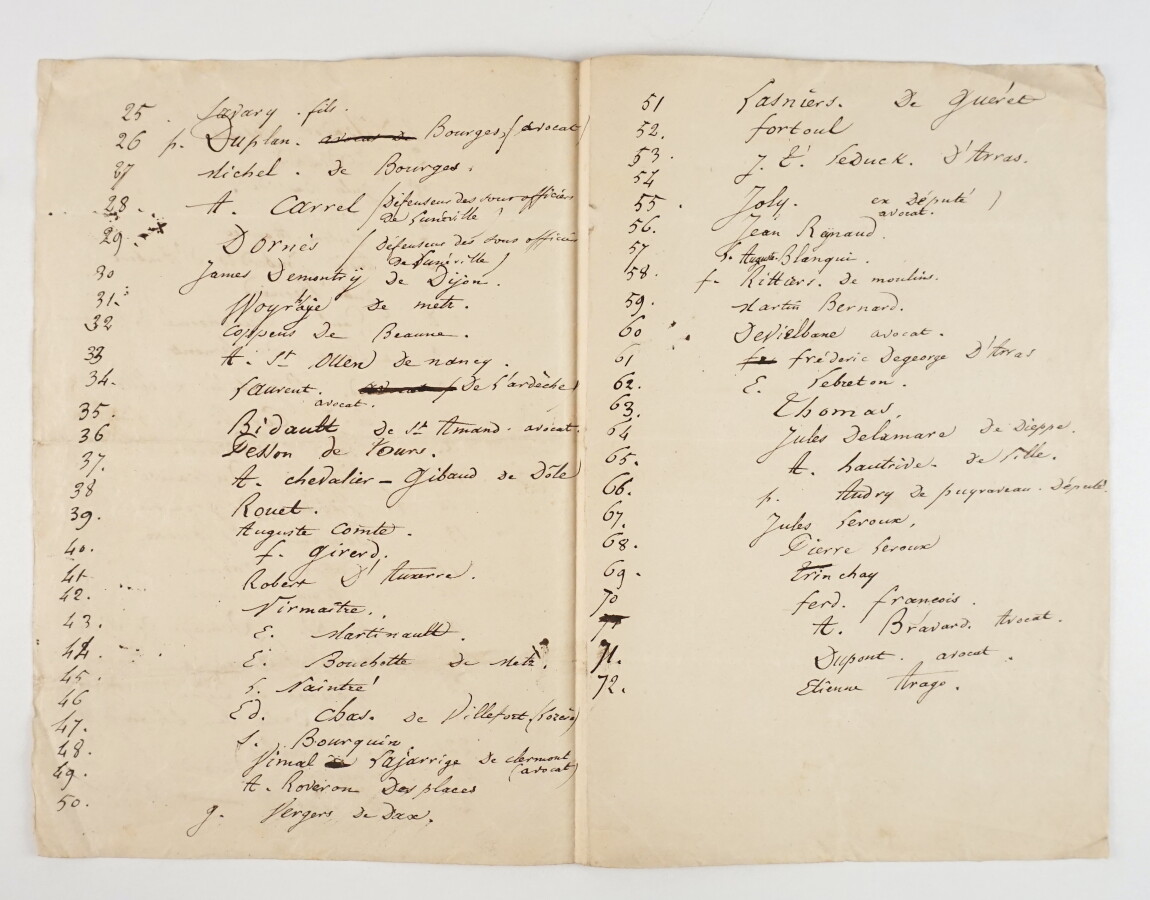 25 . Savary fils.
26 p. Duplan. avocat de Bourges (avocat)
27 Michel. de Bourges.
28. A. Carrel (Défenseur des sous officiers
de Lunéville)
29. Dornès (Défenseur des sous officiers
de Lunéville)
30 James Demontry de Dijon.
31. de metz.
32 Coppens de Beaune.
33 A. St Ouen de nancy.
34. Laurent. avocat De L'ardèche
avocat.
35. Bidault de St Amand. avocat.
36 Desson de Tours.
37. A. chevalier - Gibaud de Dôle
38 Rouet.
39. Auguste Comte.
40. f. Girerd.
41 Robert D'Auxerre.
42. Virmaitre.
43. E. Martinault.
44. E. Bouchotte de Metz.
45. L. Naintré
46 Ed. Chas. de Villefort (Lozère)
47. L. Bourquin
48. Vimal Lajarrige De clermont
(avocat)
49. A. Roveron Desplaces
50. g. Vergers de Dax.
51 Lasniers. De Guéret
52. fortoul
53. J. E. Leduck. D'Arras.
54
55 . Joly. ex Député )
avocat.
56. Jean Raynaud.
57 L. Auguste Blanqui.
58. f. Rittiers. de moulins.
59. Martin Bernard.
60 Devielbane avocat.
61 fr frédéric Degeorge D'Arras
62. E. Lebreton.
63. Thomas.
64 Jules Delamare de Dieppe.
65. A. hautrive. de Lille.
66. p. Audry de puyraveau. Député.
67. Jules Leroux.
68. Pierre Leroux
69. Trinchay
70 ferd. françois.
71 A. Bravard. Avocat.
71. Dupont. avocat.
72. Etienne Arago.